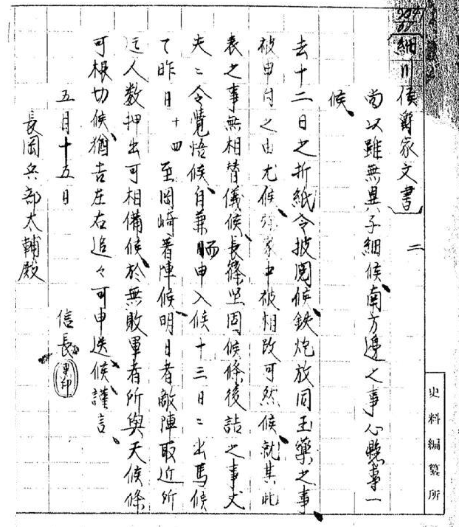 細川侯爵家文書
二
尚以雖無異子細候、南方邊之事心懸専一
候、
去十二日之折紙令披閲候、鉄炮放同玉藥之事、
被申付之由尤候、弥家中被相改可然候、就其此
表之事無相替儀候、長篠堅固候條後詰之事丈
夫ニ令覺悟候、自兼
申入候、十三日ニ出馬候
て昨日十四至岡崎着陣候、明日者敵陣取近所
迄人数押出可相備候、於無敗軍者所與天候條
可根切候、猶吉左右追々可申送候、謹言、
五月十五日
信長
朱印
長岡兵部太輔殿
史料編纂所